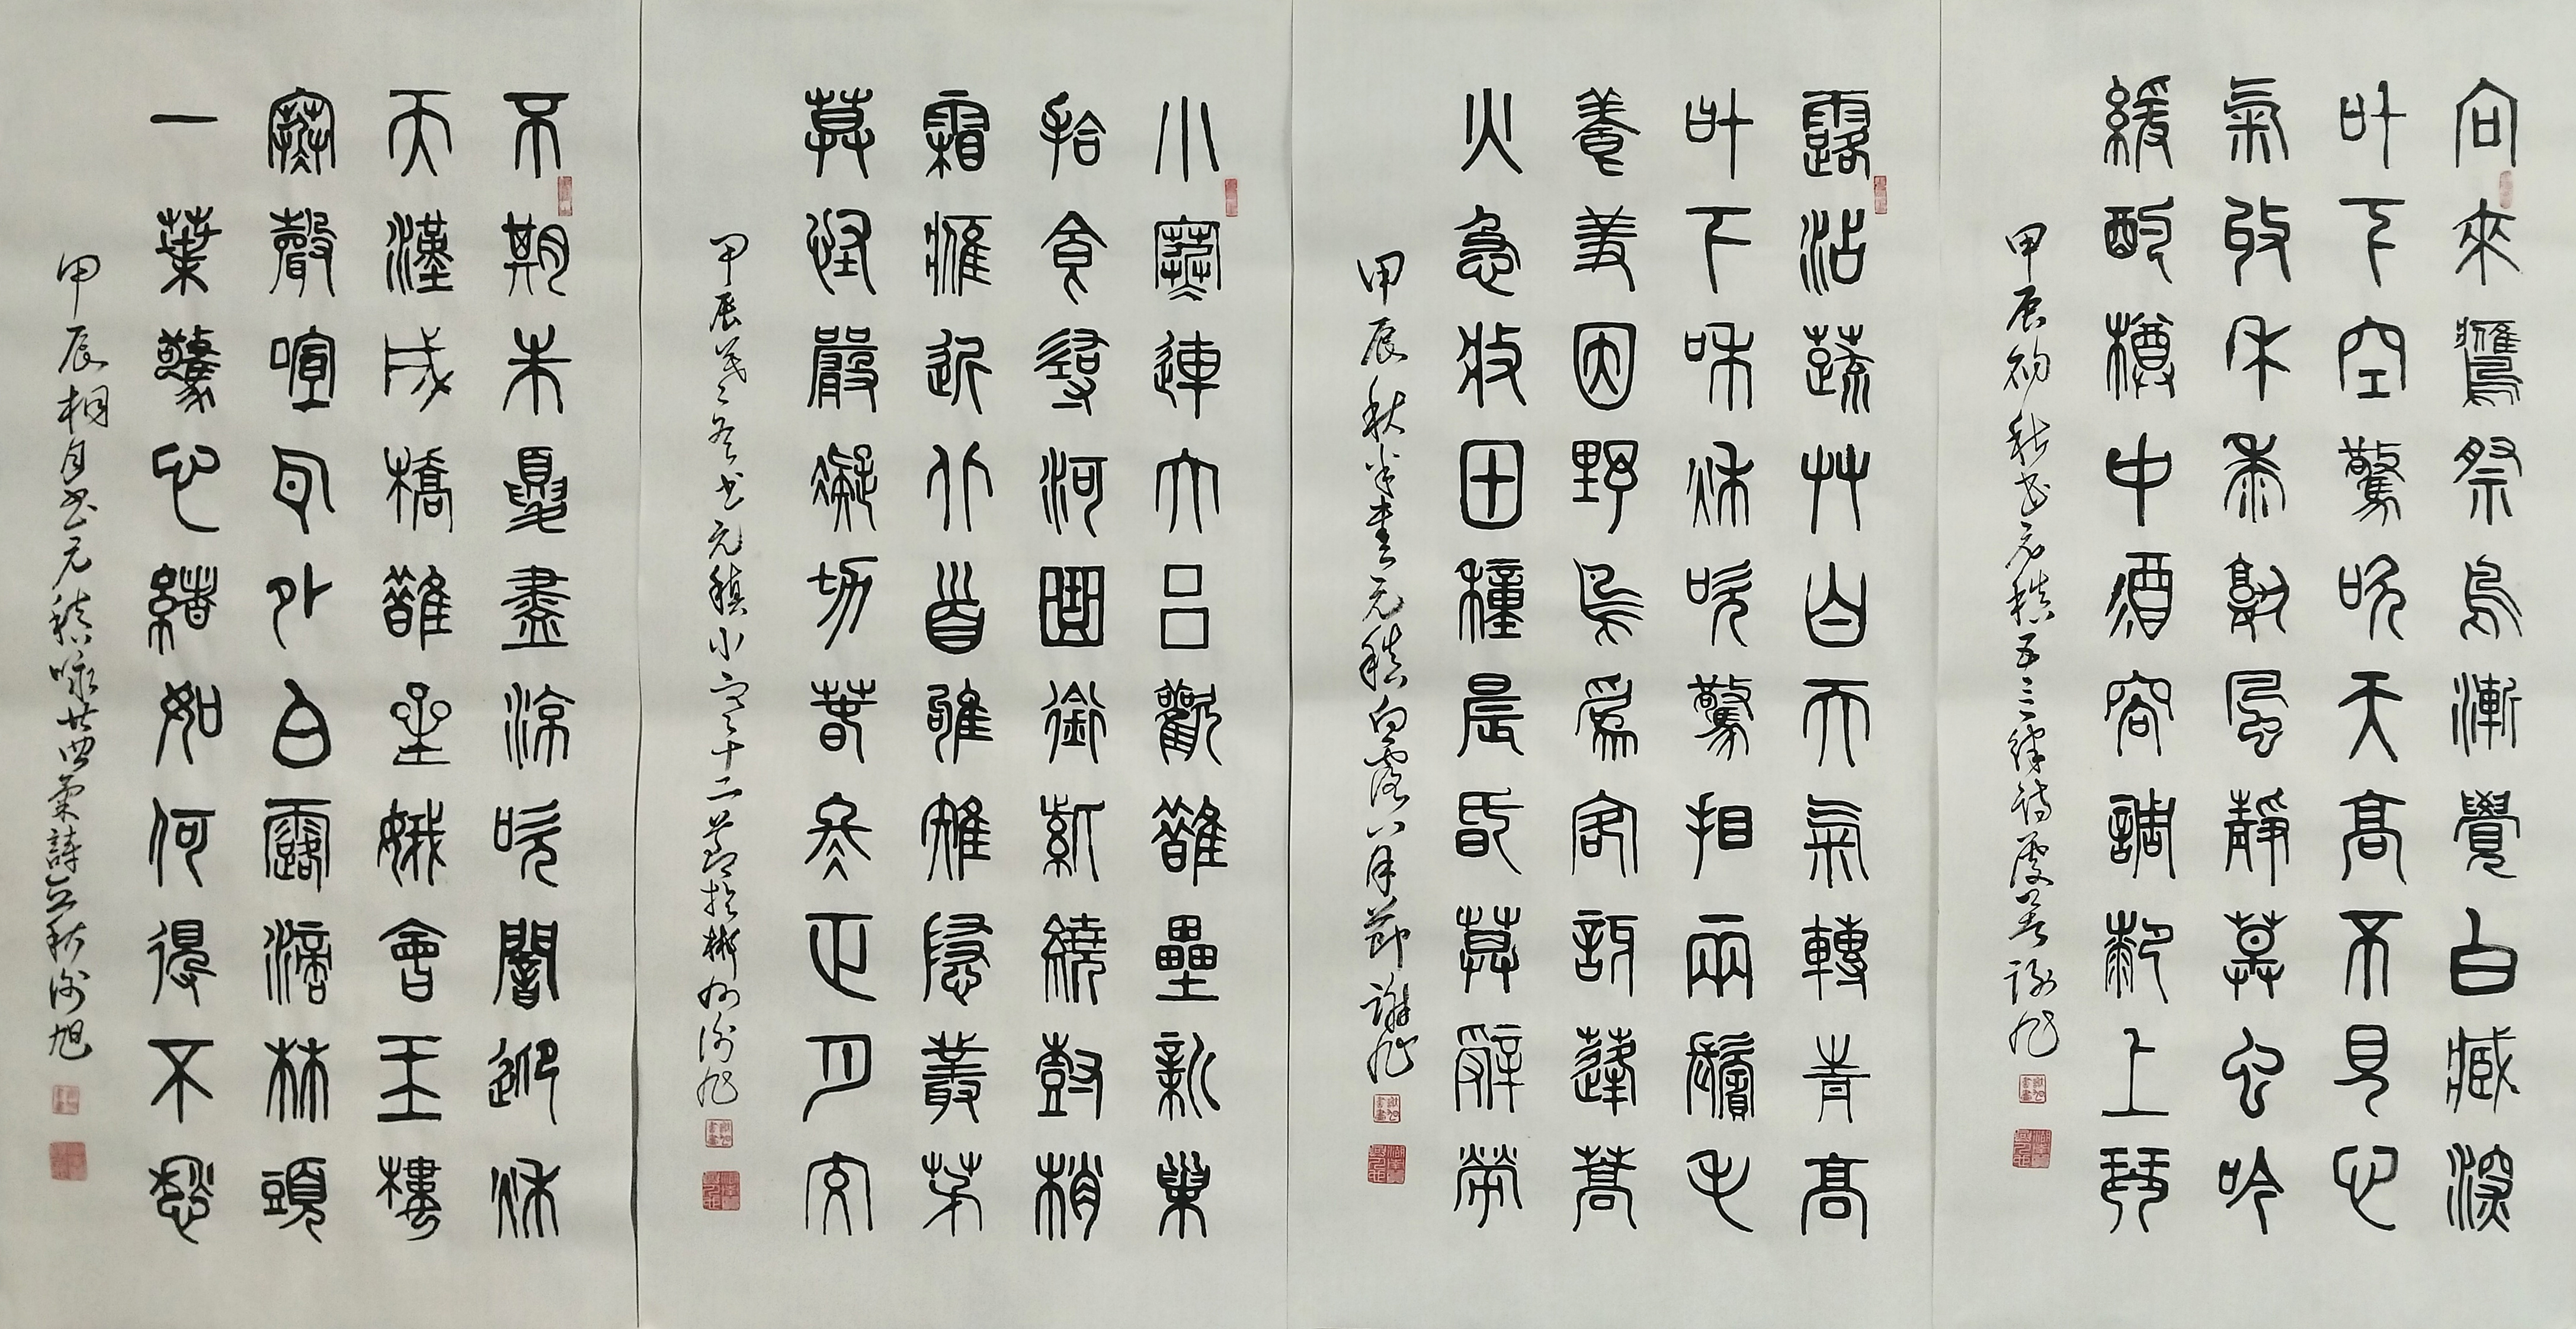 向來鷹祭鳥漸覺白藏深
叶下空驚吹天高不見心
氣收禾黍熟風靜草虫吟
緩酌樽中酒容調膝上琴
甲辰初秋書元稹五言律詩處暑謝旭
露沾蔬艸白天氣轉青高
叶下和秋吹驚看兩鬢毛
養羞因野鳥為客訝蓬蒿
火急收田種晨昏莫辭勞
甲辰秋半書元稹白露八月節謝旭
小寒連大呂歡鵲壘新巢
拾食尋河曲銜紫繞樹梢
霜鷹近北首雊雉隱叢茅
莫怪嚴凝切春冬正月交
甲辰冬書元稹小寒十二節於郴州謝旭
不期朱夏盡涼吹闇迎秋
天漢成橋鵲星娥會玉樓
寒聲喧耳外白露滴林頭
一葉驚心緒如何得不愁
甲辰相月書元稹詠廿四氣詩立秋謝旭